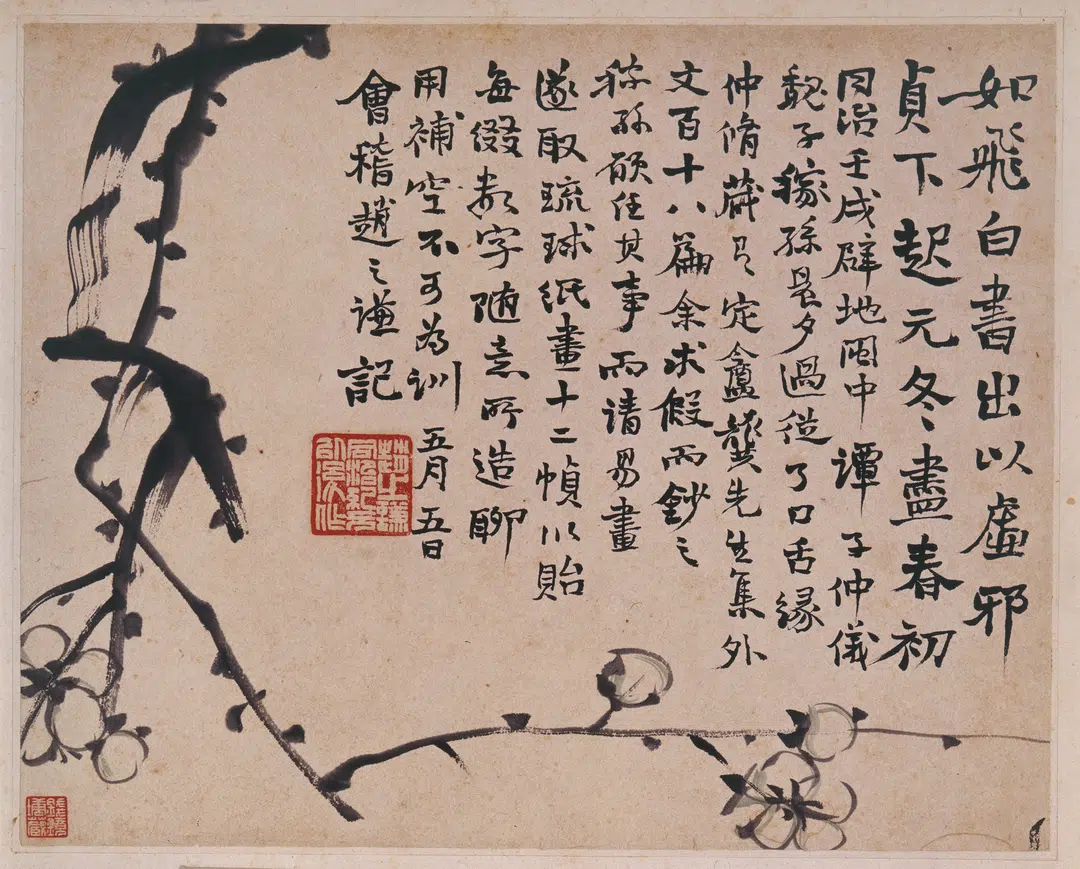 如飛白書出以虛邪
貞下起元冬盡春初
同治壬戌辟地閩中譚子仲儀
魏子稼孫晨夕過從了口舌緣
仲脩藏有定盦龔先生集外
文百十八篇余求假而鈔之
稼孫願任其事而請易畫
遂取琉球紙畫十二幀以貽
每綴數字隨意所造聊
用補空不可為訓 五月五日
會稽趙之謙記
錢鏡塘藏